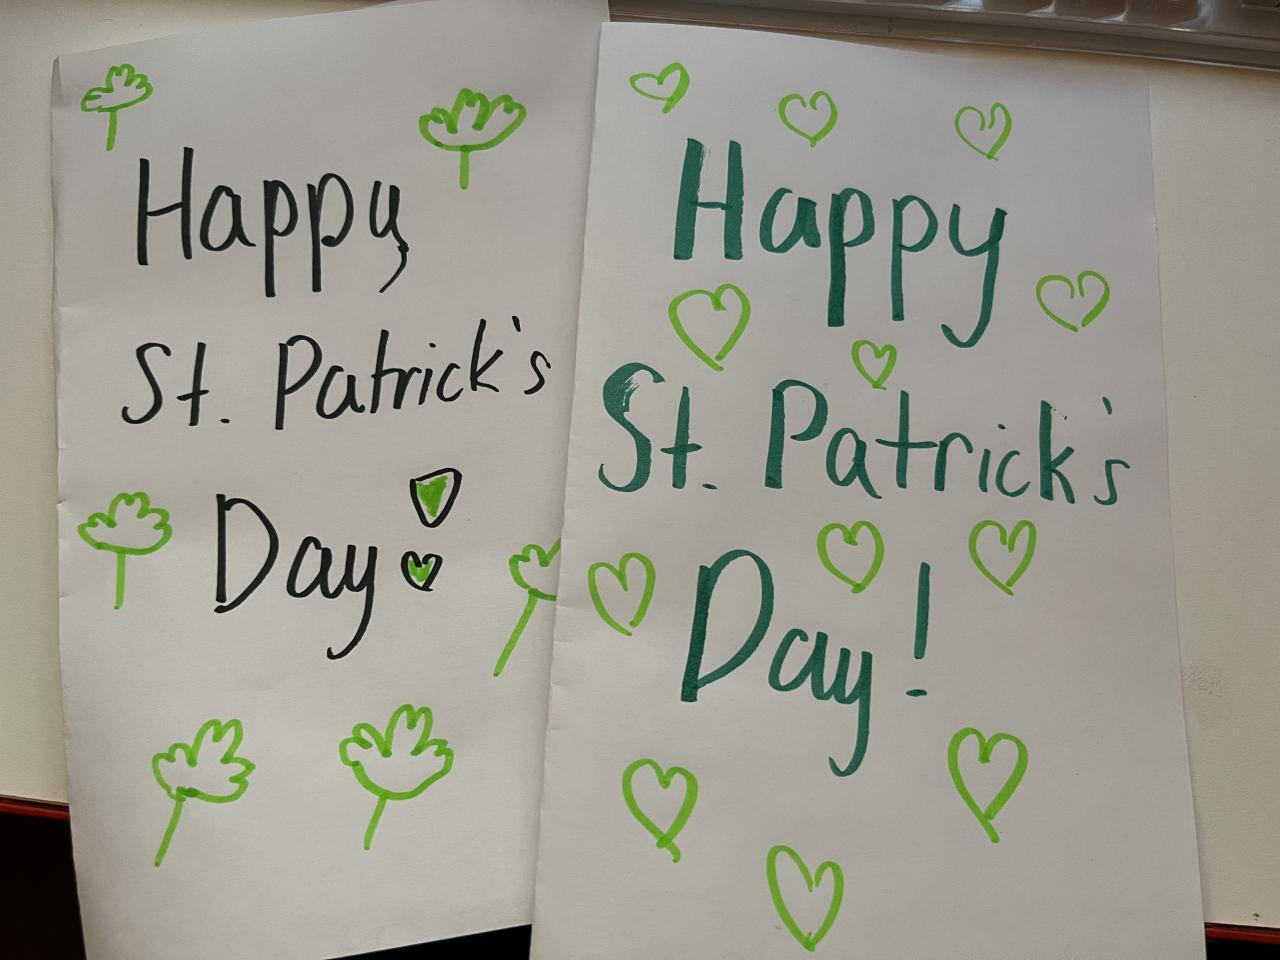 Happy
St. Patrick's
Day!
Happy
St. Patrick's
Day!